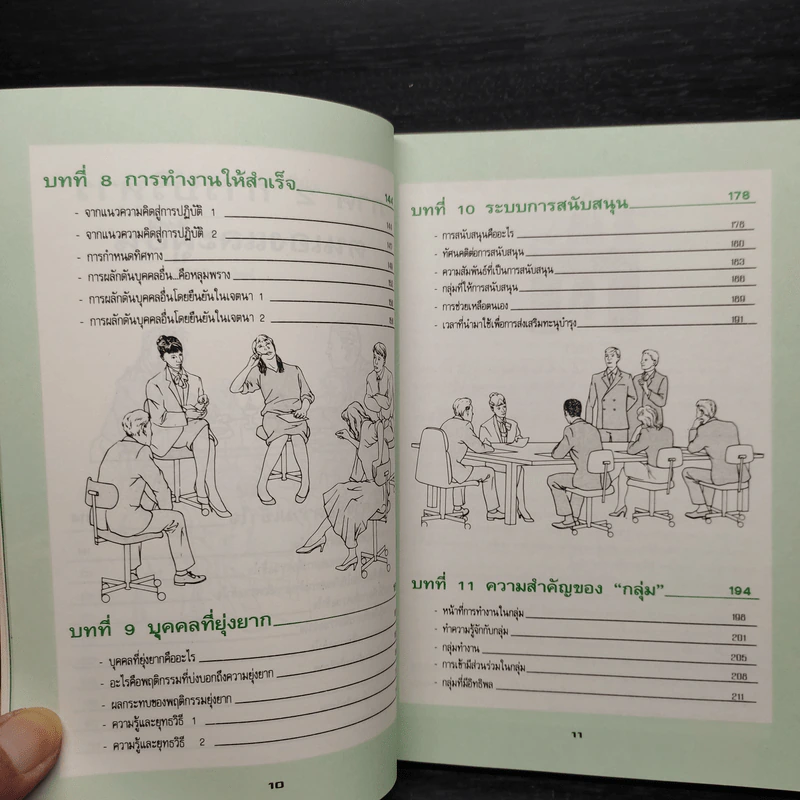 บทที่ 8 การทำงานให้สำเร็จ
- จากแนวความคิดสู่การปฏิบัติ 1
- จากแนวความคิดสู่การปฏิบัติ 2
- การกำหนดทิศทาง
- การผลักดันบุคคลอื่น...คือหลุมพราง
- การผลักดันบุคคลอื่นโดยยืนยันในเจตนา 1
- การผลักดันบุคคลอื่นโดยยืนยันในเจตนา 2
บทที่ 9 บุคคลที่ยุ่งยาก
- บุคคลที่ยุ่งยากคืออะไร
- อะไรคือพฤติกรรมที่บ่งบอกถึงความยุ่งยาก
- ผลกระทบของพฤติกรรมยุ่งยาก
- ความรู้และยุทธวิธี 1
- ความรู้และยุทธวิธี 2
10
บทที่ 10 ระบบการสนับสนุน 178
- การสนับสนุนคืออะไร 178
- ทัศนคติต่อการสนับสนุน 180
- ความสัมพันธ์ที่เป็นการสนับสนุน 183
- กลุ่มที่ให้การสนับสนุน 186
- การช่วยเหลือตนเอง 189
- เวลาที่นำมาใช้เพื่อการส่งเสริมทะนุบำรุง 191
บทที่ 11 ความสำคัญของ "กลุ่ม" 194
- หน้าที่การทำงานในกลุ่ม 198
- ทำความรู้จักกับกลุ่ม 201
- กลุ่มทำงาน 205
- การเข้ามีส่วนร่วมในกลุ่ม 208
- กลุ่มที่มีอิทธิพล 211
11